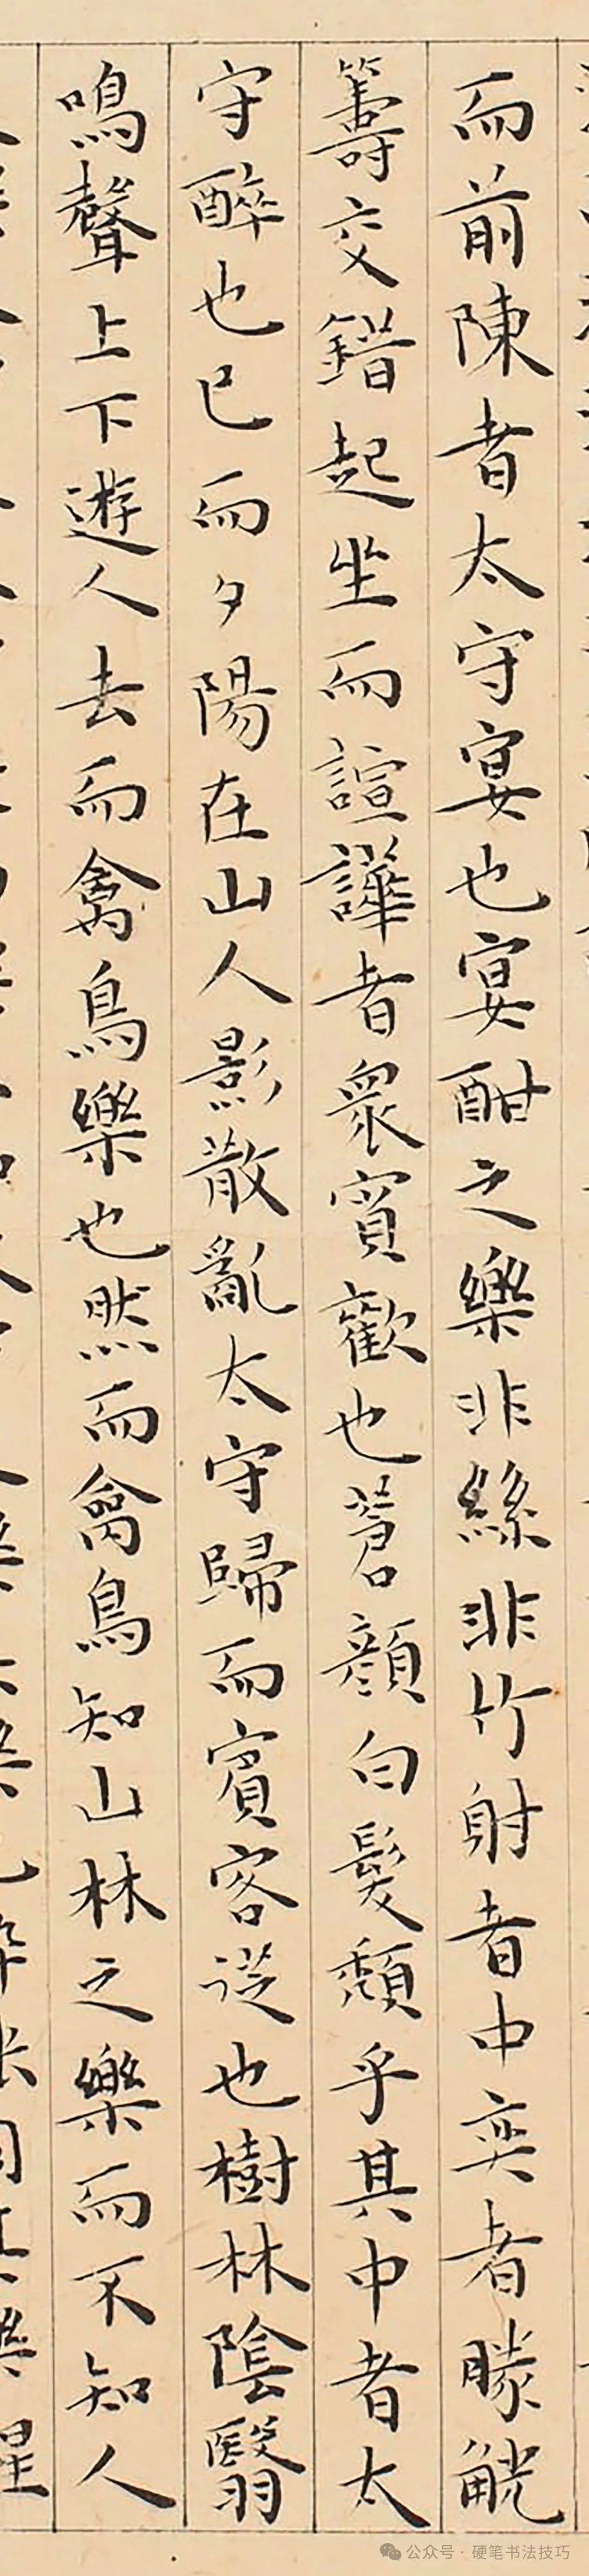 而前陳者太守宴也宴酣之樂非絲非竹射者中奕者勝觥
籌交錯起坐而諠譁者衆賓歡也蒼顏白髮頹乎其中者太
守醉也已而夕陽在山人影散亂太守歸而賓客從也樹林陰翳
鳴聲上下遊人去而禽鳥樂也然而禽鳥知山林之樂而不知人
公众号·硬笔书法技巧